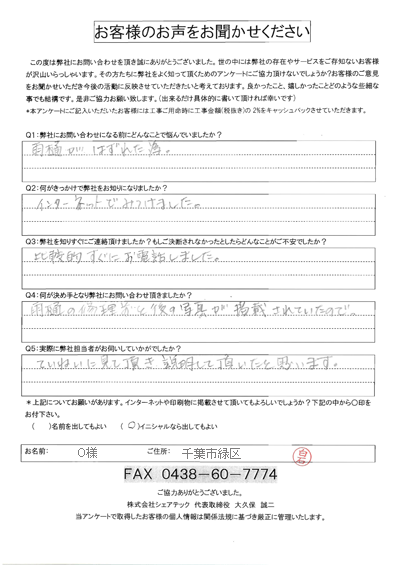 お客様のお声をお聞かせください
この度は弊社にお問い合わせを頂き誠にありがとうございました。世の中には弊社の存在やサービスをご存知ないお客様
が沢山いらっしゃいます。その方たちに弊社をよく知って頂くためのアンケートにご協力頂けないでしょうか?お客様のご意見
をお聞かせいただき今後の活動に反映させていただきたいと考えております。良かったこと、嬉しかったことどのような些細な
事でも結構です。是非ご協力お願い致します。(出来るだけ具体的に書いて頂ければ幸いです)
*本アンケートにご記入いただいたお客様には工事ご用命時に工事金額(税抜き)の2%をキャッシュバックさせていただきます。
Q1:弊社にお問い合わせになる前にどんなことで悩んでいましたか?
雨樋がはずれた為。
Q2:何がきっかけで弊社をお知りになりましたか?
インターネットでみつけました。
Q3:弊社を知りすぐにご連絡頂けましたか?もしご決断されなかったとしたらどんなことがご不安でしたか?
比較的すぐにお電話しました。
Q4:何が決め手となり弊社にお問い合わせ頂きましたか?
雨樋の修理前と後の写真が掲載されていたので。
Q5:実際に弊社担当者がお伺いしていかがでしたか?
ていねいに見て頂き説明して頂いたと思います。
*上記についてお願いがあります。インターネットや印刷物に掲載させて頂いてもよろしいでしょうか?下記の中から〇印を
お付下さい。
( )名前を出してもよい (〇)イニシャルなら出してもよい
お名前: O様 ご住所: 千葉市緑区 白石
FAX 0438-60-7774
ご協力ありがとうございました。
株式会社シェアテック 代表取締役 大久保 誠二
当アンケートで取得したお客様の個人情報は関係法規に基づき厳正に管理いたします。